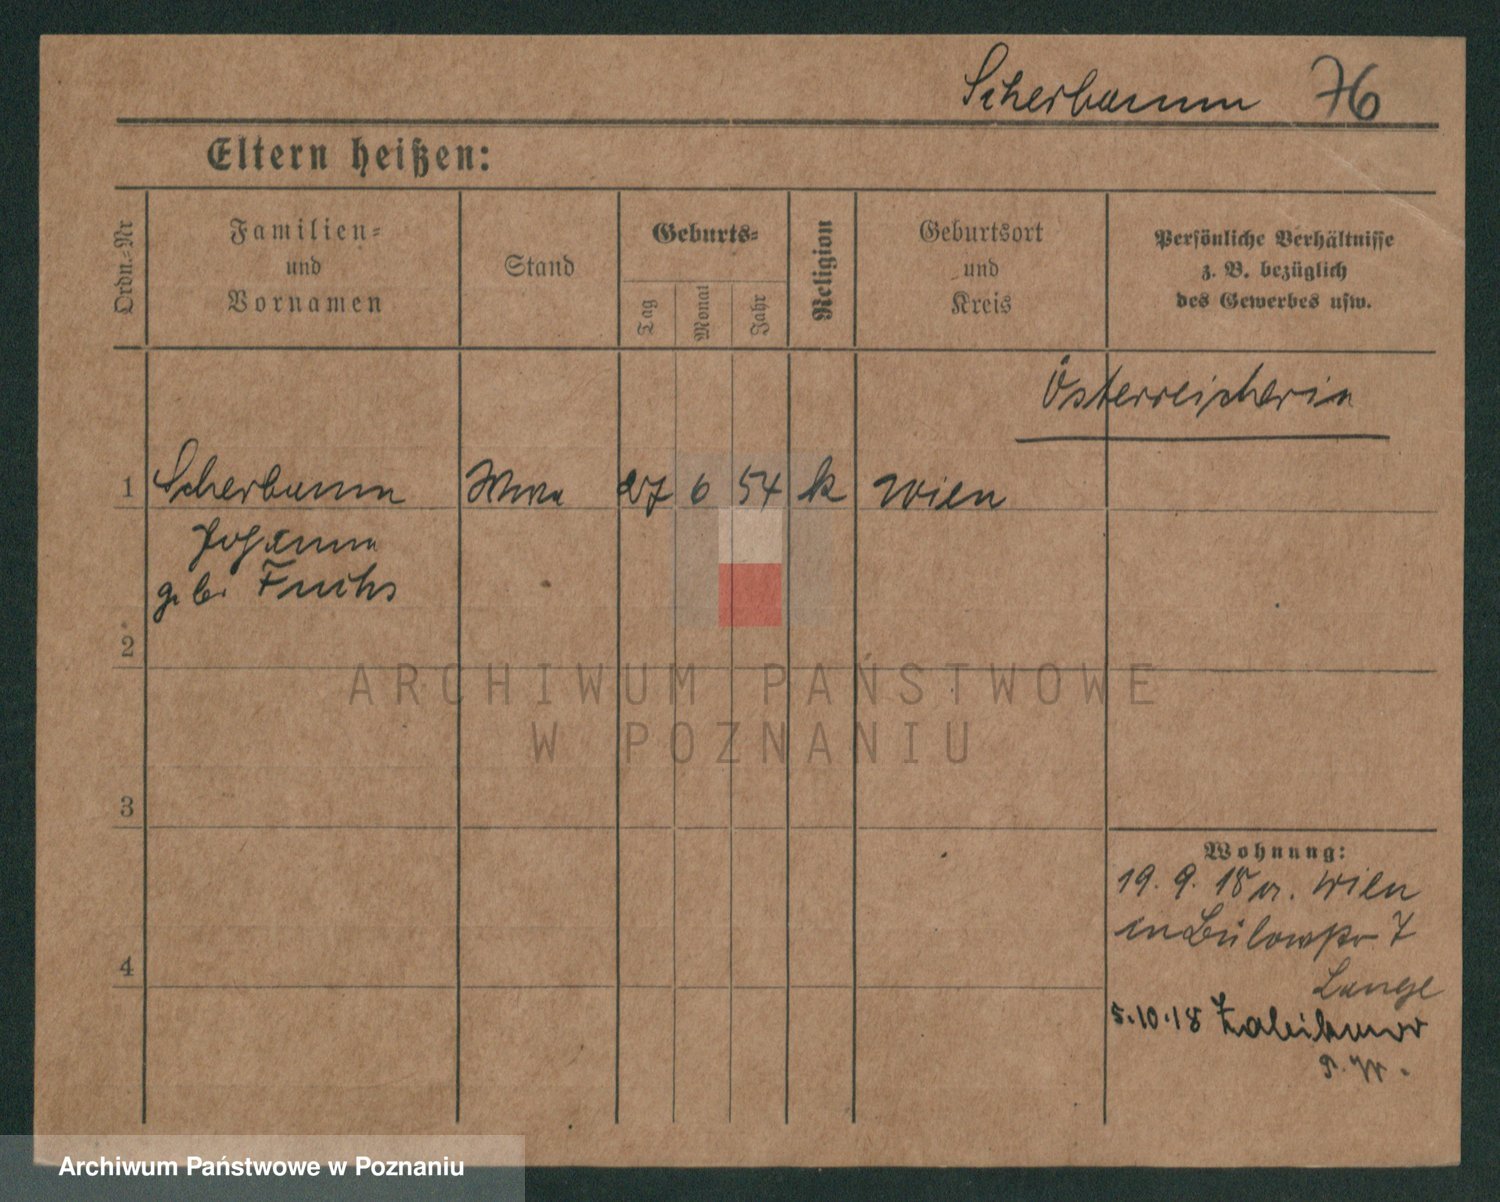 Scherbaum 76
Eltern heißen:
Ordn.-Nr
Familien-
und
Vornamen
Stand
Geburts-
Tag
Monat
Jahr
Religion
Geburtsort
und
Kreis
Persönliche Verhältnisse
z. B. bezüglich
des Gewerbes usw.
Österreicherin
1 Scherbaum Wwe 27 6 54 k Wien
Johanna
geb. Fuchs
2
3
4
Wohnung:
19. 9. 18 v. Wien
in Bülowstr 7
Lange
5.10.18 Zabikowo
ARCHIWUM PAŃSTWOWE
W POZNANIU
Archiwum Państwowe w Poznaniu